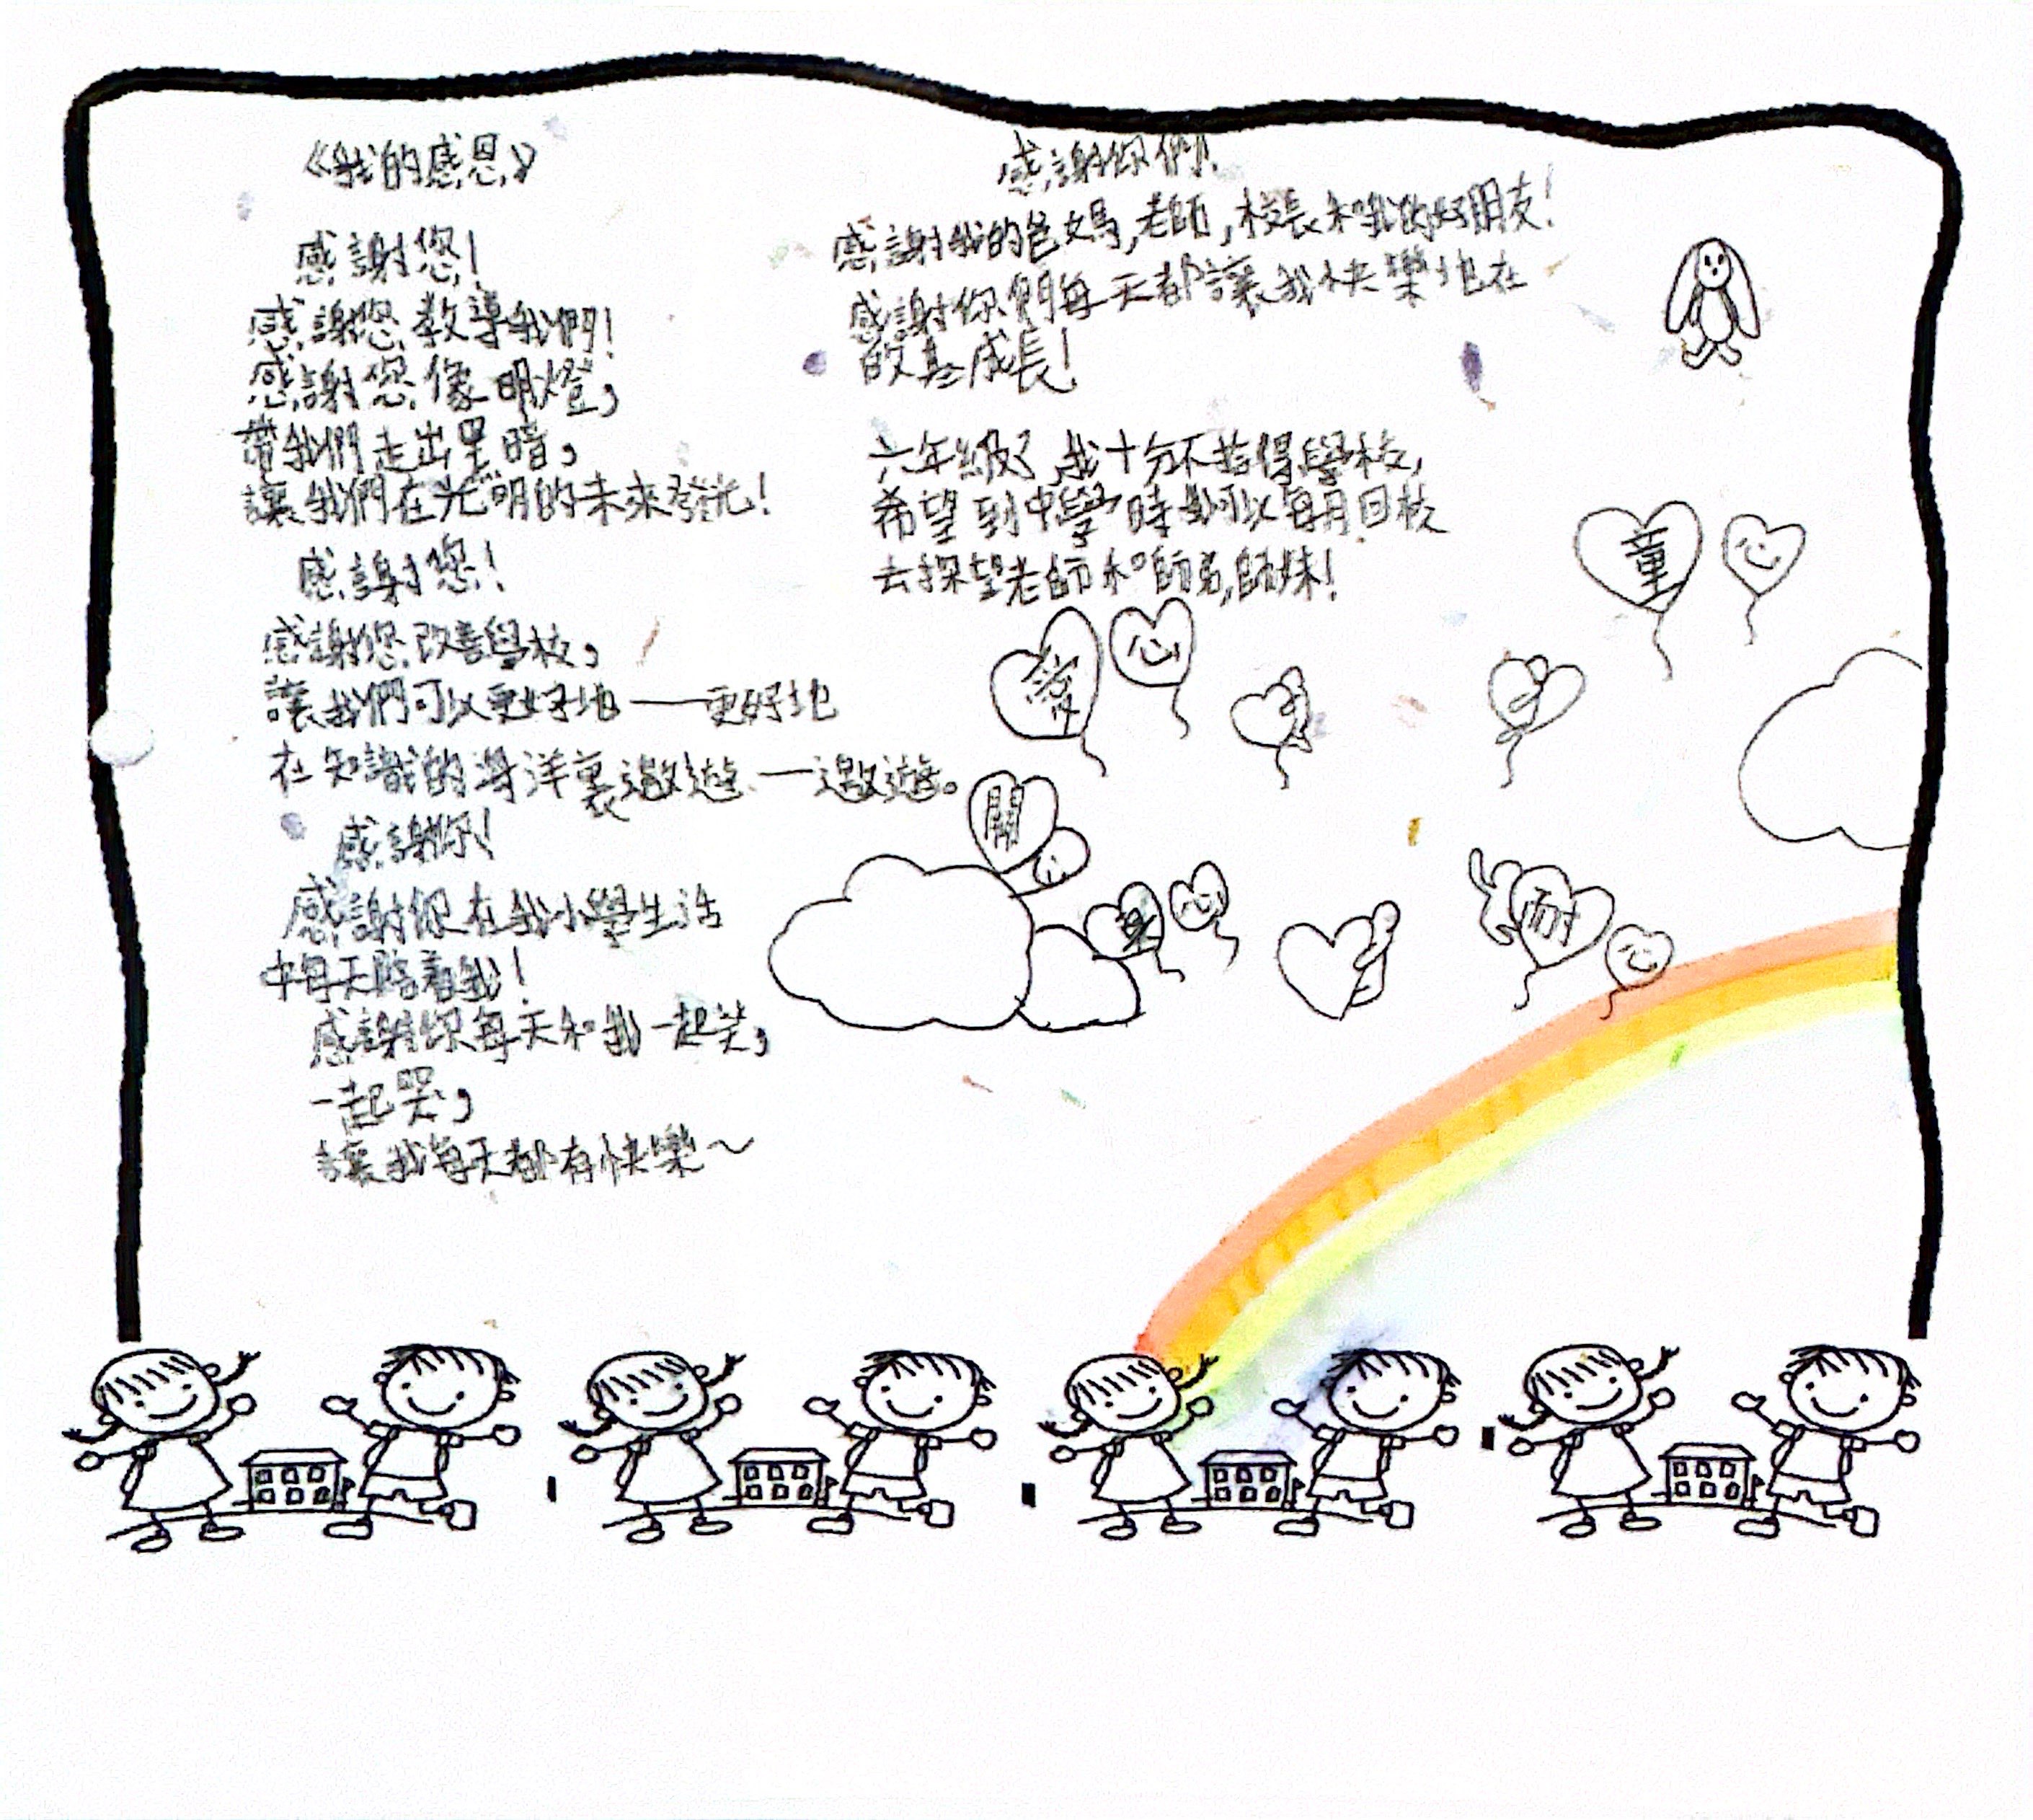 《我的感恩》
感謝您!
感謝您教導我們!
感謝您像明燈,
帶我們走出黑暗,
讓我們在光明的未來發光!
感謝您!
感謝您改善學校,
讓我們可以更好地——更好地
在知識的海洋裏遨遊——遨遊。
感謝你!
感謝你在我小學生活
中每天陪着我!
感謝你每天和我一起笑,
一起哭,
讓我每天都有快樂~
感謝你們!
感謝我的爸媽,老師,校長和我的好朋友!
感謝你們每天都讓我快樂地在
成長!
六年級了,我十分不捨得學校,
希望到中學時我可以每月回校
去探望老師和師弟,師妹!
童心
愛心
關心
耐心